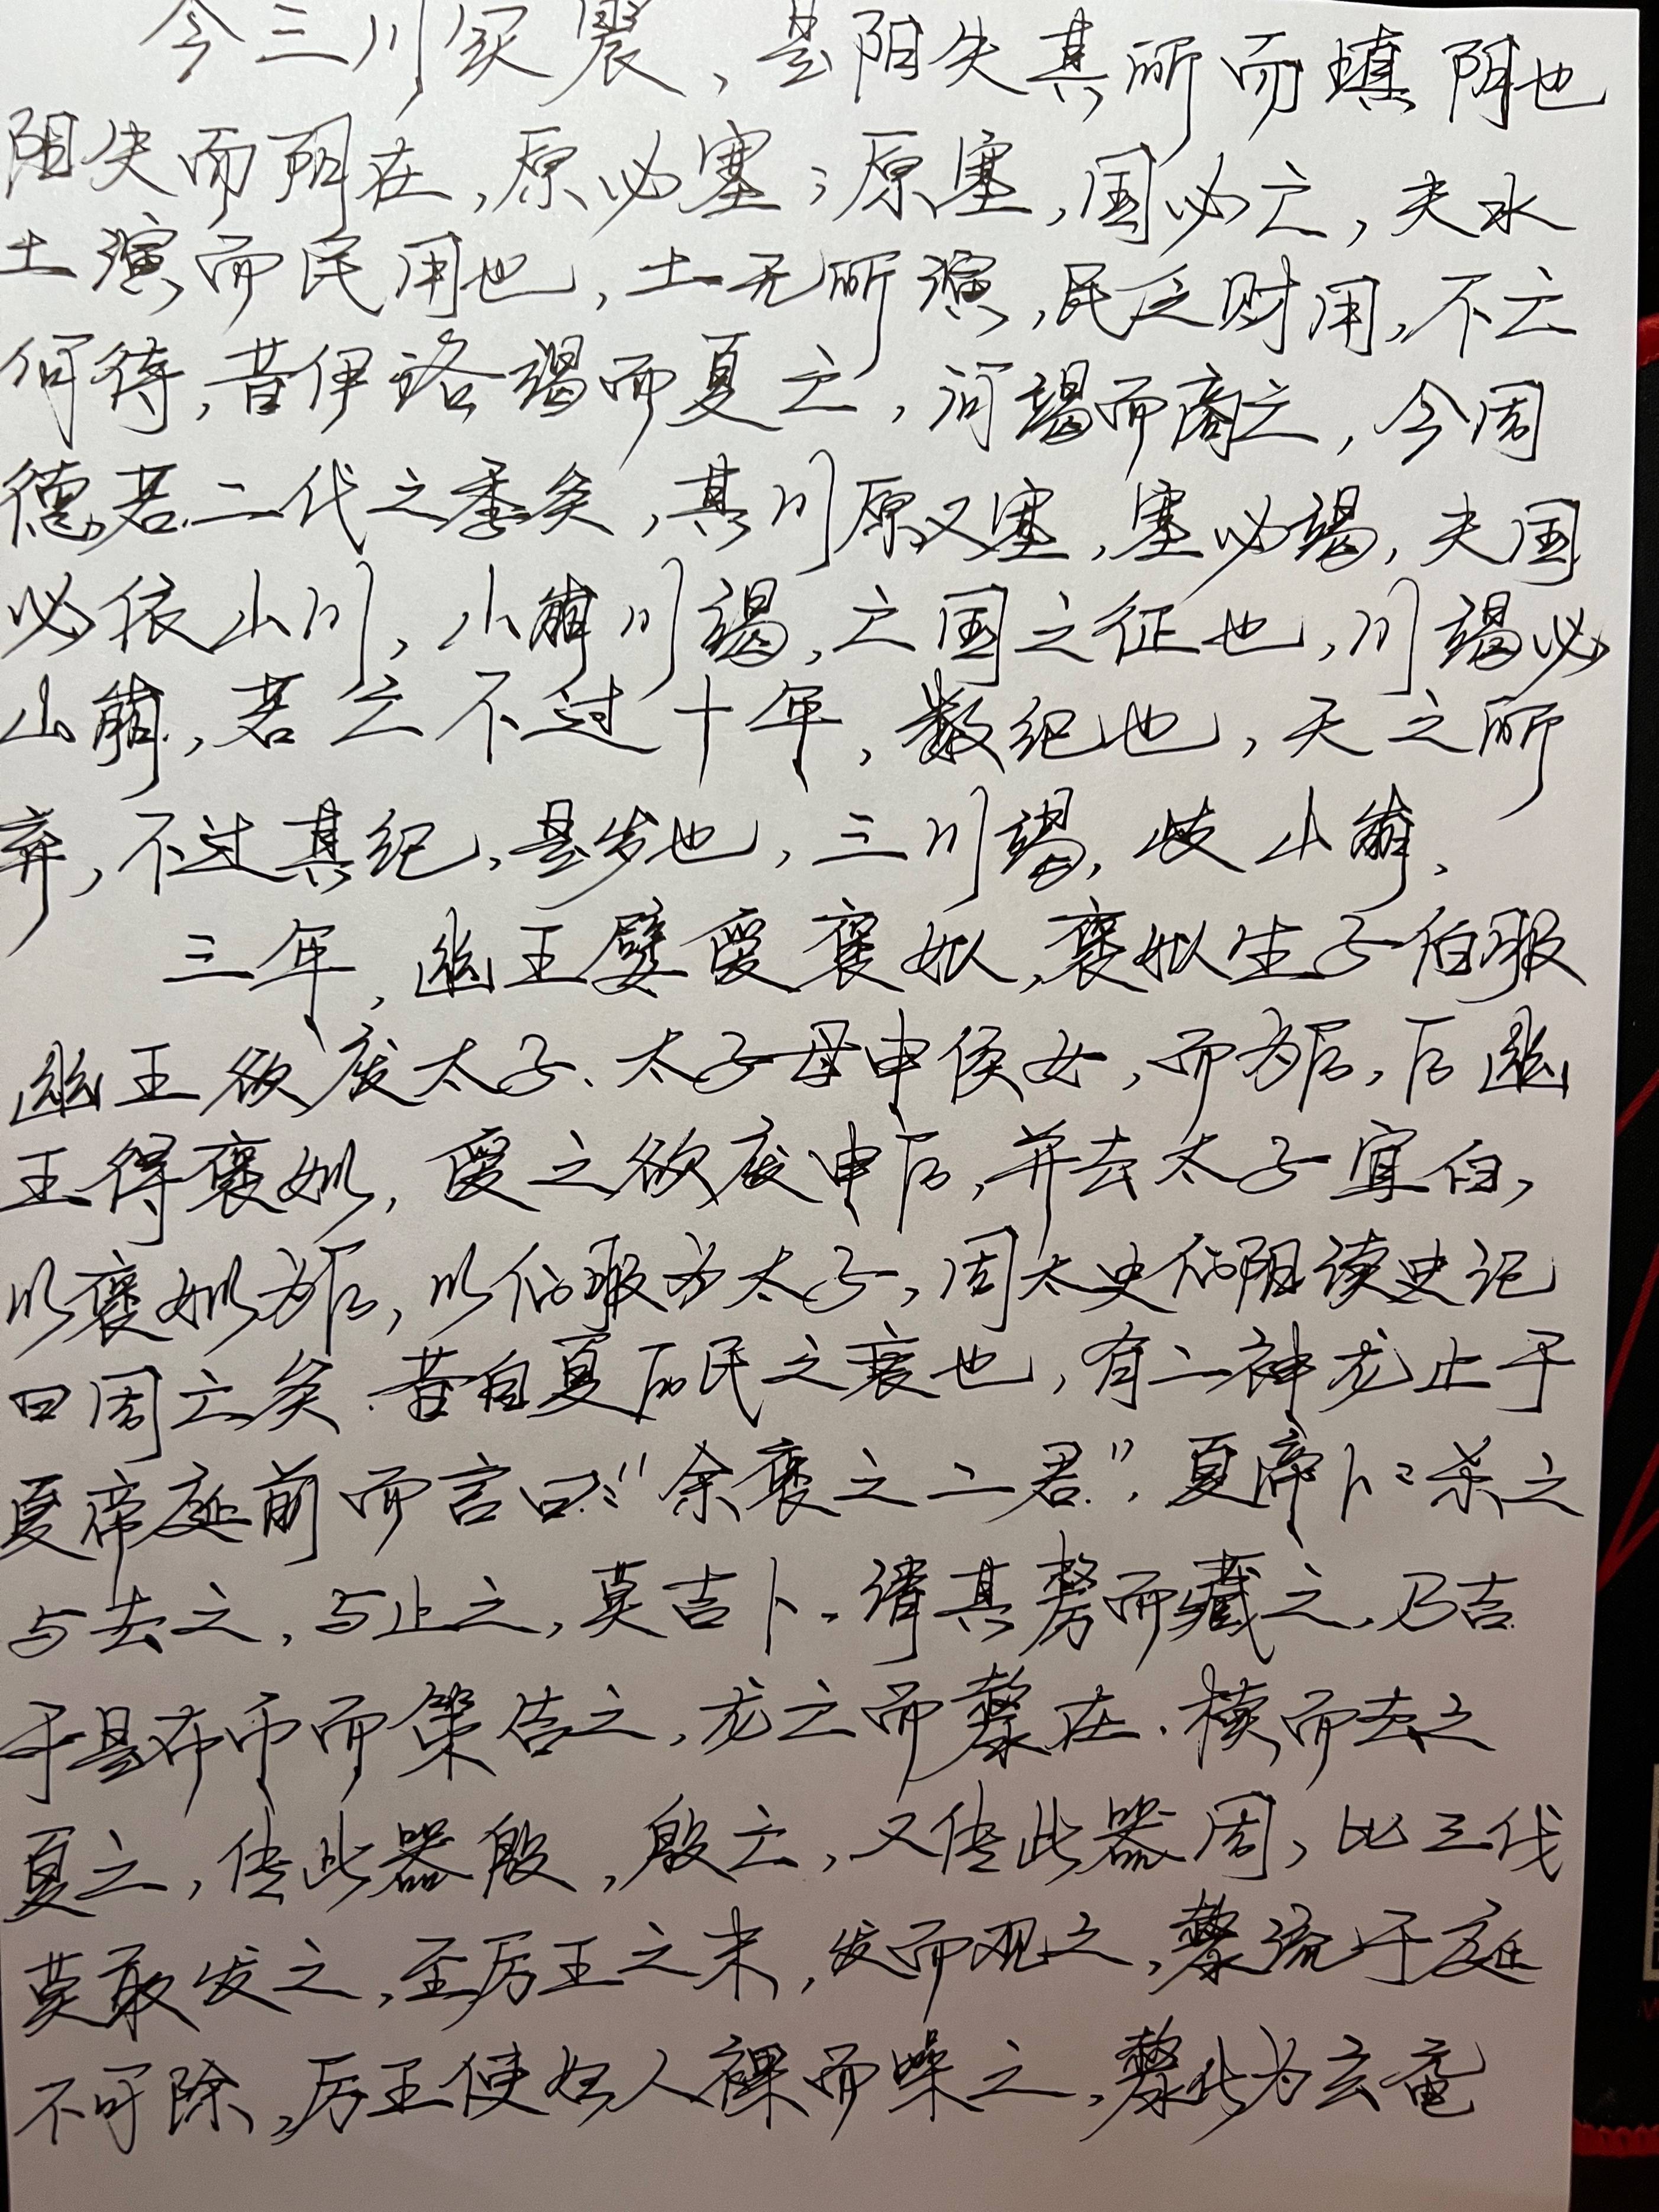 今三川实震，是阳失其所而填阴也
阳失而阴在，原必塞；原塞，国必亡，夫水
土演而民用也，土无所演，民乏财用，不亡
何待，昔伊洛竭而夏亡，河竭而商亡，今周
德若二代之季矣，其川原又塞，塞必竭，夫国
必依山川，山崩川竭，亡国之征也，川竭必
山崩，若亡不过十年，数纪也，天之所
弃，不过其纪，是岁也，三川竭，岐山崩，
三年，幽王嬖爱褒姒，褒姒生子伯服
幽王欲废太子、太子母申侯女，而为后，后幽
王得褒姒，爱之欲废申后，并去太子宜臼，
以褒姒为后，以伯服为太子，周太史伯阳读史记
曰周亡矣．昔自夏后氏之衰也，有二神龙止于
夏帝庭前而言曰：“余褒之二君”，夏帝卜：杀之
与去之，与止之，莫吉卜，请其漦而藏之，乃吉
于是布币而策告之，龙亡而漦在．椟而去之
夏亡，传此器殷，殷亡，又传此器周，比三代
莫敢发之，至厉王之末，发而观之，漦流于庭
不可除，厉王使妇人裸而噪之，漦化为玄鼋